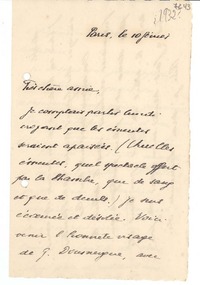 Paris, le 10 février
Très chère amie,
Je comptais partir lundi
croyant que les émeutes
seraient apaisées (Cruelles
émeutes, quel spectacle offert
par la Chambre, que de sang
et que de deuils.) je suis
écœurée et désolée. Voici
venir l'honnête visage
de G. Doumergue, avec